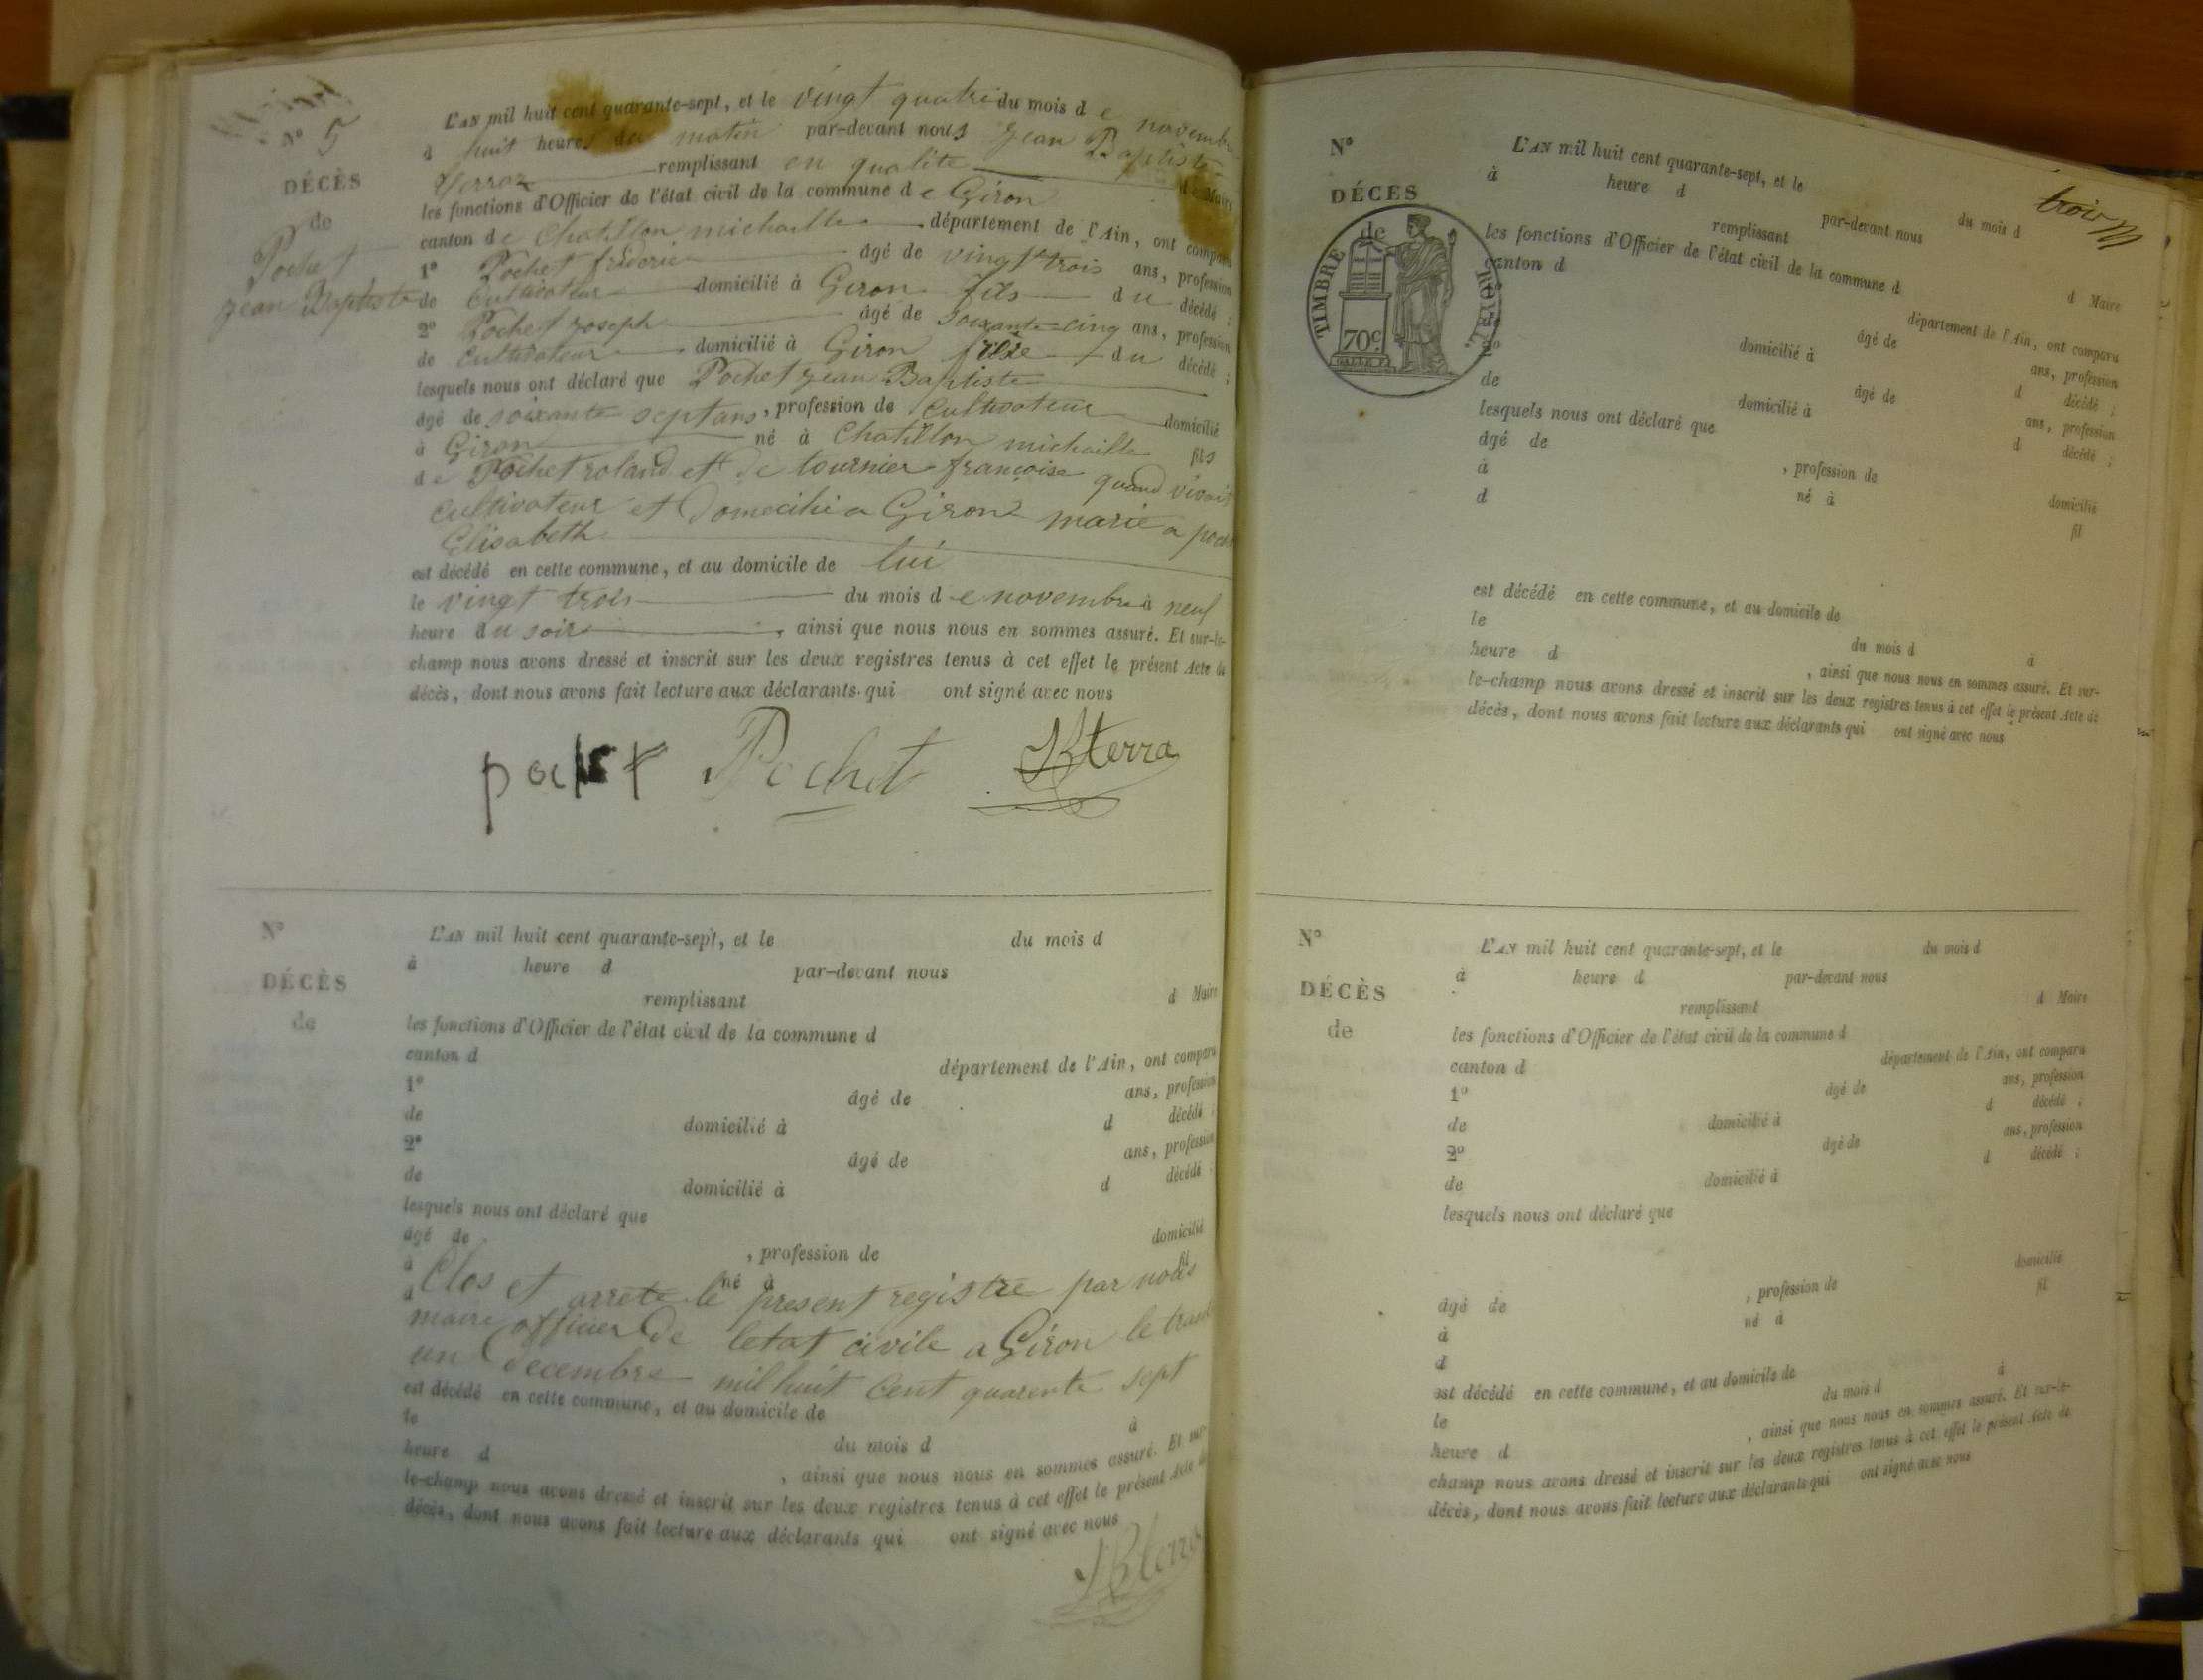 N° 5
DÉCÈS
de
Pochet
jean Baptiste
L'AN mil huit cent quarante-sept, et le vingt quatre du mois de novembre
à huit heures du matin par-devant nous jean Baptiste
remplissant en qualité de Maire
les fonctions d'Officier de l'état civil de la commune de Giron
canton de Chatillon michaille département de l'Ain, ont comparu
1° Pochet fréderic âgé de vingt trois ans, profession
de Cultivateur domicilié à Giron fils du décédé ;
2° Pochet joseph âgé de soixante-cinq ans, profession
de cultivateur domicilié à Giron du décédé ;
lesquels nous ont déclaré que Pochet jean Baptiste
âgé de soixante sept ans, profession de Cultivateur domicilié
à Giron né à Chatillon michaille fils
de Pochet roland et de tournier francoise quand vivait
cultivateur et domecilié a Giron marié a
Elisabeth
est décédé en cette commune, et au domicile de lui
le vingt trois du mois de novembre à neuf
heure du soir, ainsi que nous nous en sommes assuré. Et sur-le-
champ nous avons dressé et inscrit sur les deux registres tenus à cet effet le présent Acte de
décès, dont nous avons fait lecture aux déclarants qui ont signé avec nous
Pochet JBterra
N°
DÉCÈS
de
L'AN mil huit cent quarante-sept, et le du mois d
à heure d par-devant nous
remplissant d Maire
les fonctions d'Officier de l'état civil de la commune d
canton d département de l'Ain, ont comparu
1° âgé de ans, profession
de domicilié à d décédé ;
2° âgé de ans, profession
de domicilié à d décédé ;
lesquels nous ont déclaré que
âgé de , profession de domicilié
à né à fil
d
Clos et arrete le present registre par nous
maire officier de letat civile a Giron le trante
un decembre mil huit cent quarente sept
est décédé en cette commune, et au domicile de
le du mois d à
heure d , ainsi que nous nous en sommes assuré. Et sur-
le-champ nous avons dressé et inscrit sur les deux registres tenus à cet effet le présent Acte de
décès, dont nous avons fait lecture aux déclarants qui ont signé avec nous
JBterra
N°
DÉCES
de
TIMBRE ROYAL.
70c.
trois
L'AN mil huit cent quarante-sept, et le du mois d
à heure d par-devant nous
remplissant d Maire
les fonctions d'Officier de l'état civil de la commune d
canton d département de l'Ain, ont comparu
âgé de ans, profession
de domicilié à d décédé ;
2° âgé de ans, profession
de domicilié à d décédé ;
lesquels nous ont déclaré que
âgé de , profession de domicilié
à né à fil
d
est décédé en cette commune, et au domicile de
le du mois d à
heure d , ainsi que nous nous en sommes assuré. Et sur-
le-champ nous avons dressé et inscrit sur les deux registres tenus à cet effet le présent Acte de
décès, dont nous avons fait lecture aux déclarants qui ont signé avec nous
N°
DÉCÈS
de
L'AN mil huit cent quarante-sept, et le du mois d
à heure d par-devant nous
remplissant d Maire
les fonctions d'Officier de l'état civil de la commune d
canton d département de l'Ain, ont comparu
1° âgé de ans, profession
de domicilié à d décédé ;
2° âgé de ans, profession
de domicilié à d décédé ;
lesquels nous ont déclaré que
âgé de , profession de domicilié
à né à fil
d
est décédé en cette commune, et au domicile de
le du mois d à
heure d , ainsi que nous nous en sommes assuré. Et sur-le-
champ nous avons dressé et inscrit sur les deux registres tenus à cet effet le présent Acte de
décès, dont nous avons fait lecture aux déclarants qui ont signé avec nous